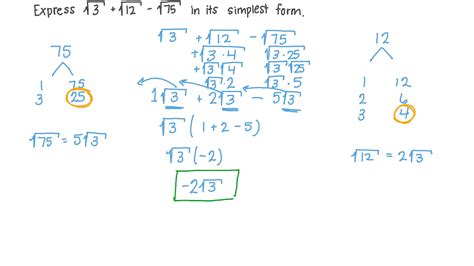 Express √3 + √12 - √75 in its simplest form.
75
1 75
3 25
√75 = 5√3
√3 + √12 - √75
+√3·4 √3·25
+√3√4 √3·√25
√3·2 √3·5
1√3 + 2√3 - 5√3
√3 (1+2-5)
√3 (-2)
-2√3
12
1 12
2 6
3 4
√12 = 2√3